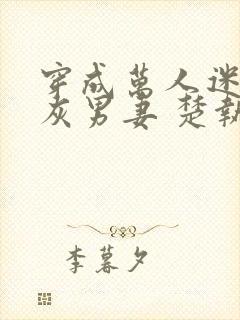 穿成萬人迷
灰男妻 楚執
李暮夕